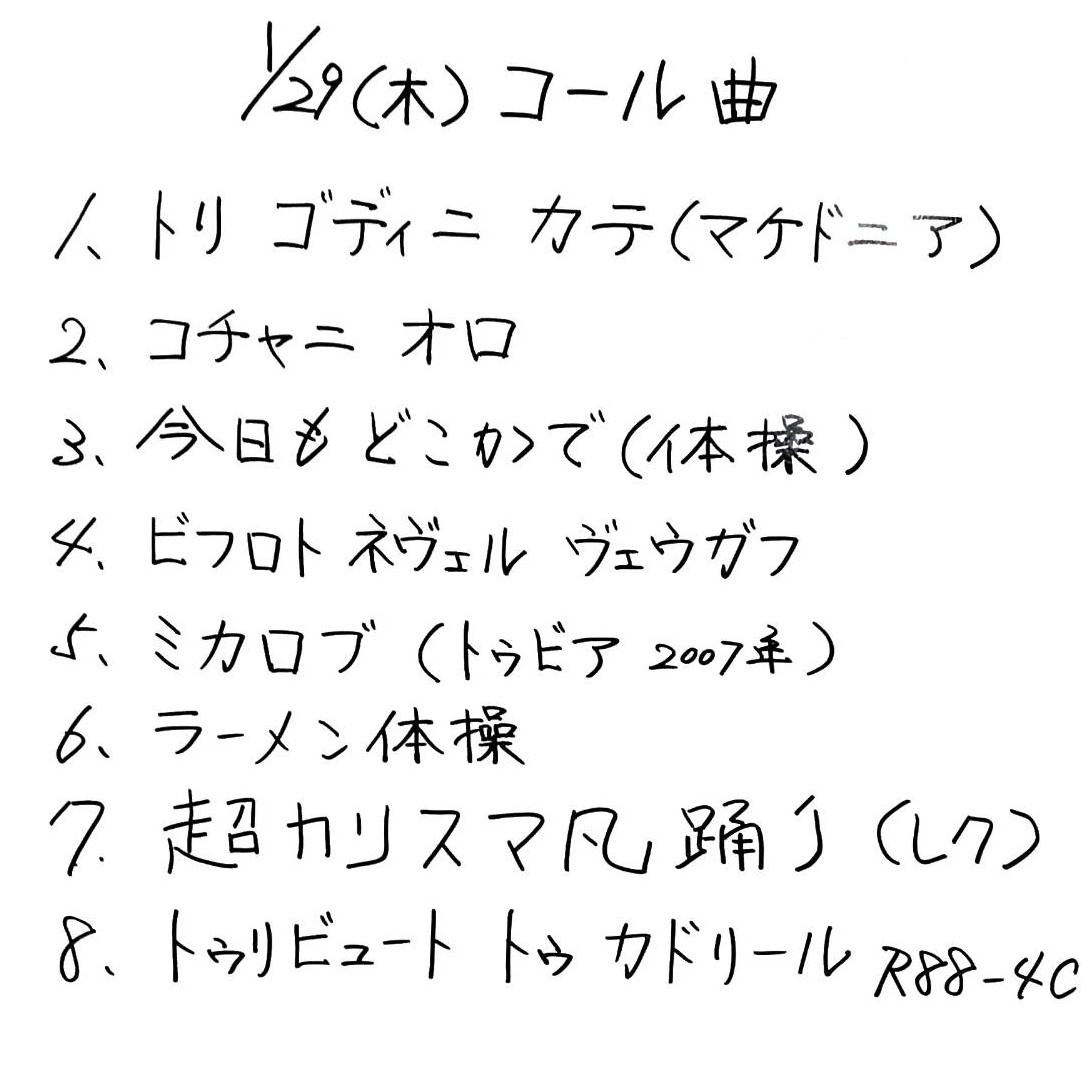 1/29(木)コール曲
1、トリ ゴディニ カテ(マケドニア)
2、コチャニ オロ
3、今日もどこかで(体操)
4、ビフロト ネヴェル ヴェウガフ
5、ミカロブ(トゥビア 2007年)
6、ラーメン体操
7. 超カリスマ凡踊り(レク)
8、トゥリビュート トゥ カドリール R88-4C